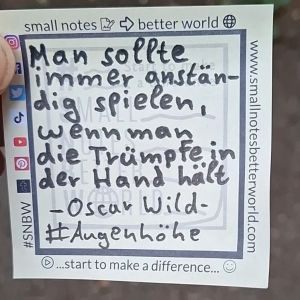 small notes better world
Man sollte
immer anstän-
dig spielen,
wenn man
die Trümpfe in
der Hand hält
-Oscar Wild-
#Augenhöhe
...start to make a difference...
#SNBW
www.smallnotesbetterworld.com